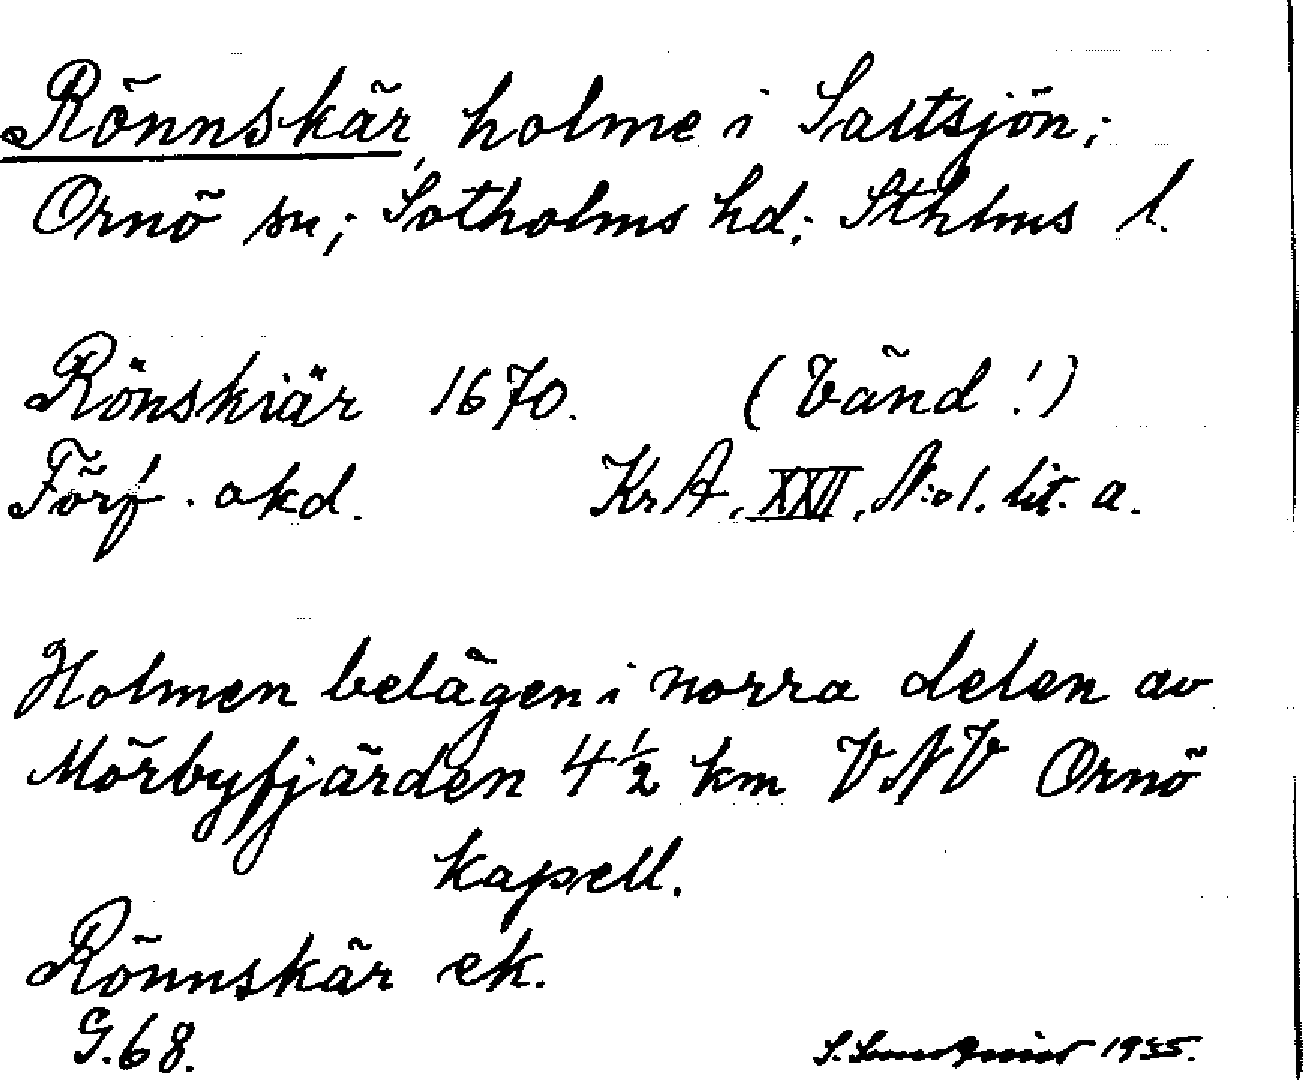 Rönnskär, holme i Saltsjön;
Ornö sn; Sotholms hd; Sthlms l.
Rönskiär 1670. (Vänd!)
Förf. akd. KrA, XXII, N:o 1. lit. a.
Holmen belägen i norra delen av
Mörbyfjärden 4 1/2 km VNV Ornö
kapell.
Rönnskär ek.
G.68.
S. 1935.